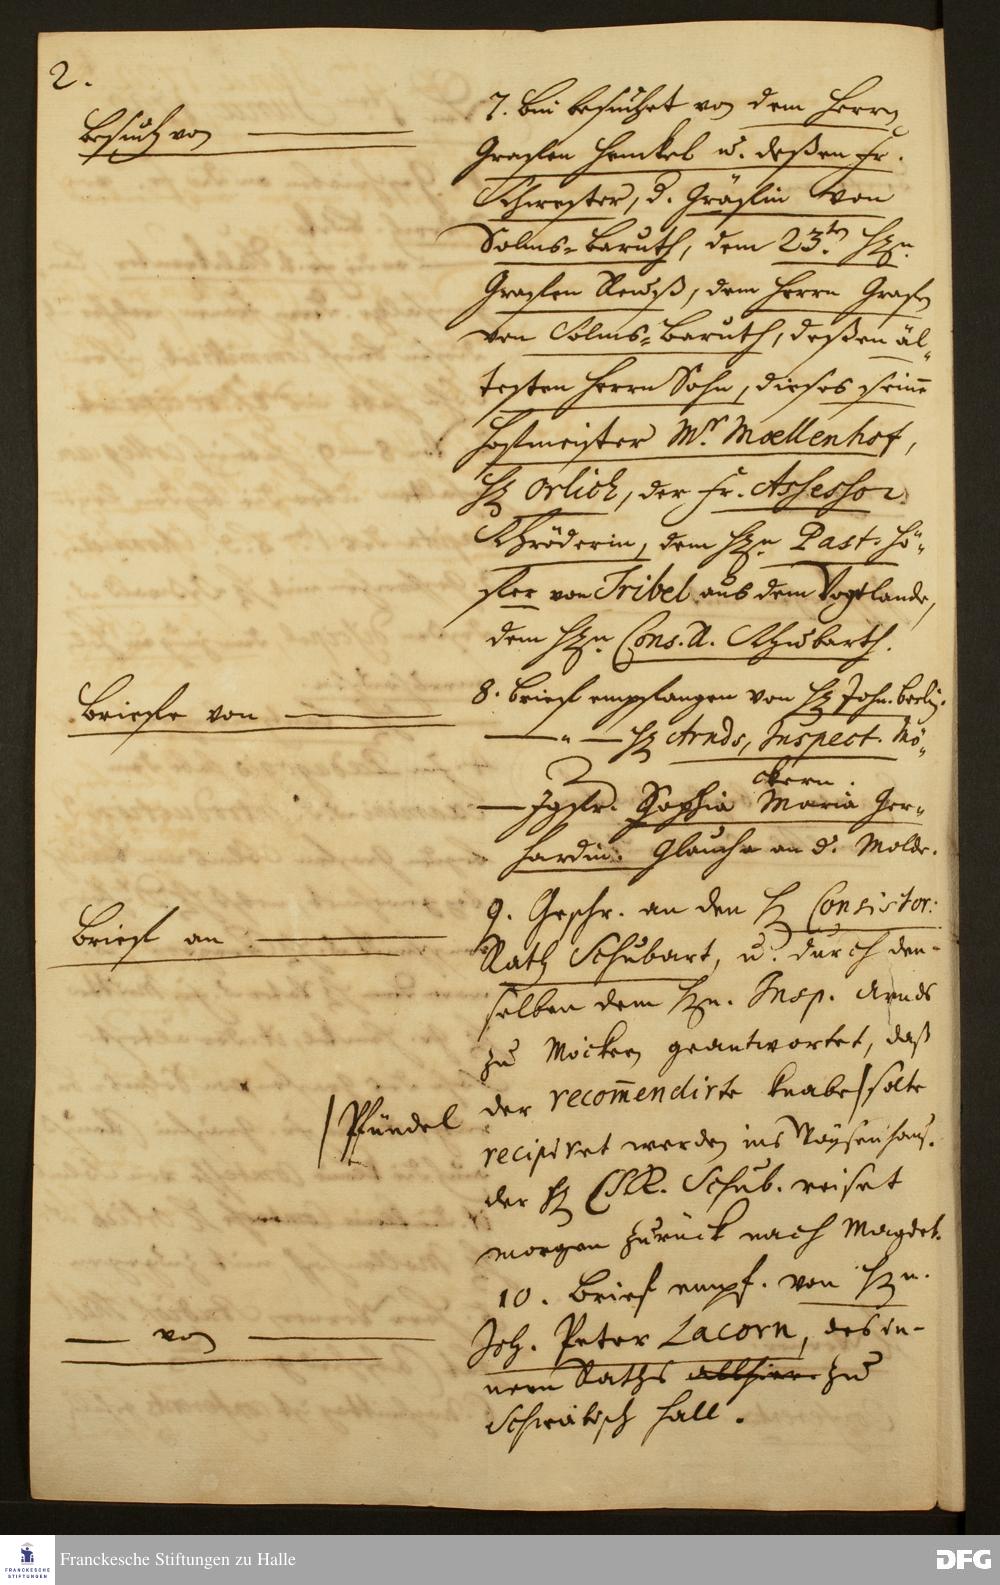 2.
Besuch von
7. Bin besuchet von dem Herrn
Graffen Henckel u. deßen Fr.
Schwester, d. Gräffin von
Solms-Baruth, dem 23.ten Hn.
Graffen Reuß, dem Herrn Graffen
von Solms-Baruth, deßen äl-
testen Herrn Sohn, dieses seinem
Hoffmeister Mr. Mœllenhof,
H. Orlich, der Fr. Assessor
Schröderin, dem Hn. Past. Hö-
fler von Tribel aus dem Vogtlande,
dem Hn. Cons. R. Schubarth.
Briefe von
8. Brieff empfangen von H. Joh. Berlin.
— " — H. Arnds, Inspect. Mö-
ckern.
— Jgfr. Sophia Maria Ger-
hardin. Glaucha an d. Molde.
Brieff an
9. Geschr. an den H. Consistor.
Rath Schubart, u. durch den-
selben dem Hn. Insp. Arnds
zu Möckern geantwortet, daß
der recom̄endirte Knabe/ solte
/Pfündel
recipiret werden ins Wäysenhaus.
der H. CR. Schub. reiset
morgen zurück nach Magdeb.
— von
10. Brief empf. von Hn.
Joh. Peter Lacorn, des in-
nern Raths allhier zu
Schwäbisch Hall.
FRANCKESCHE STIFTUNGEN
Franckesche Stiftungen zu Halle
DFG